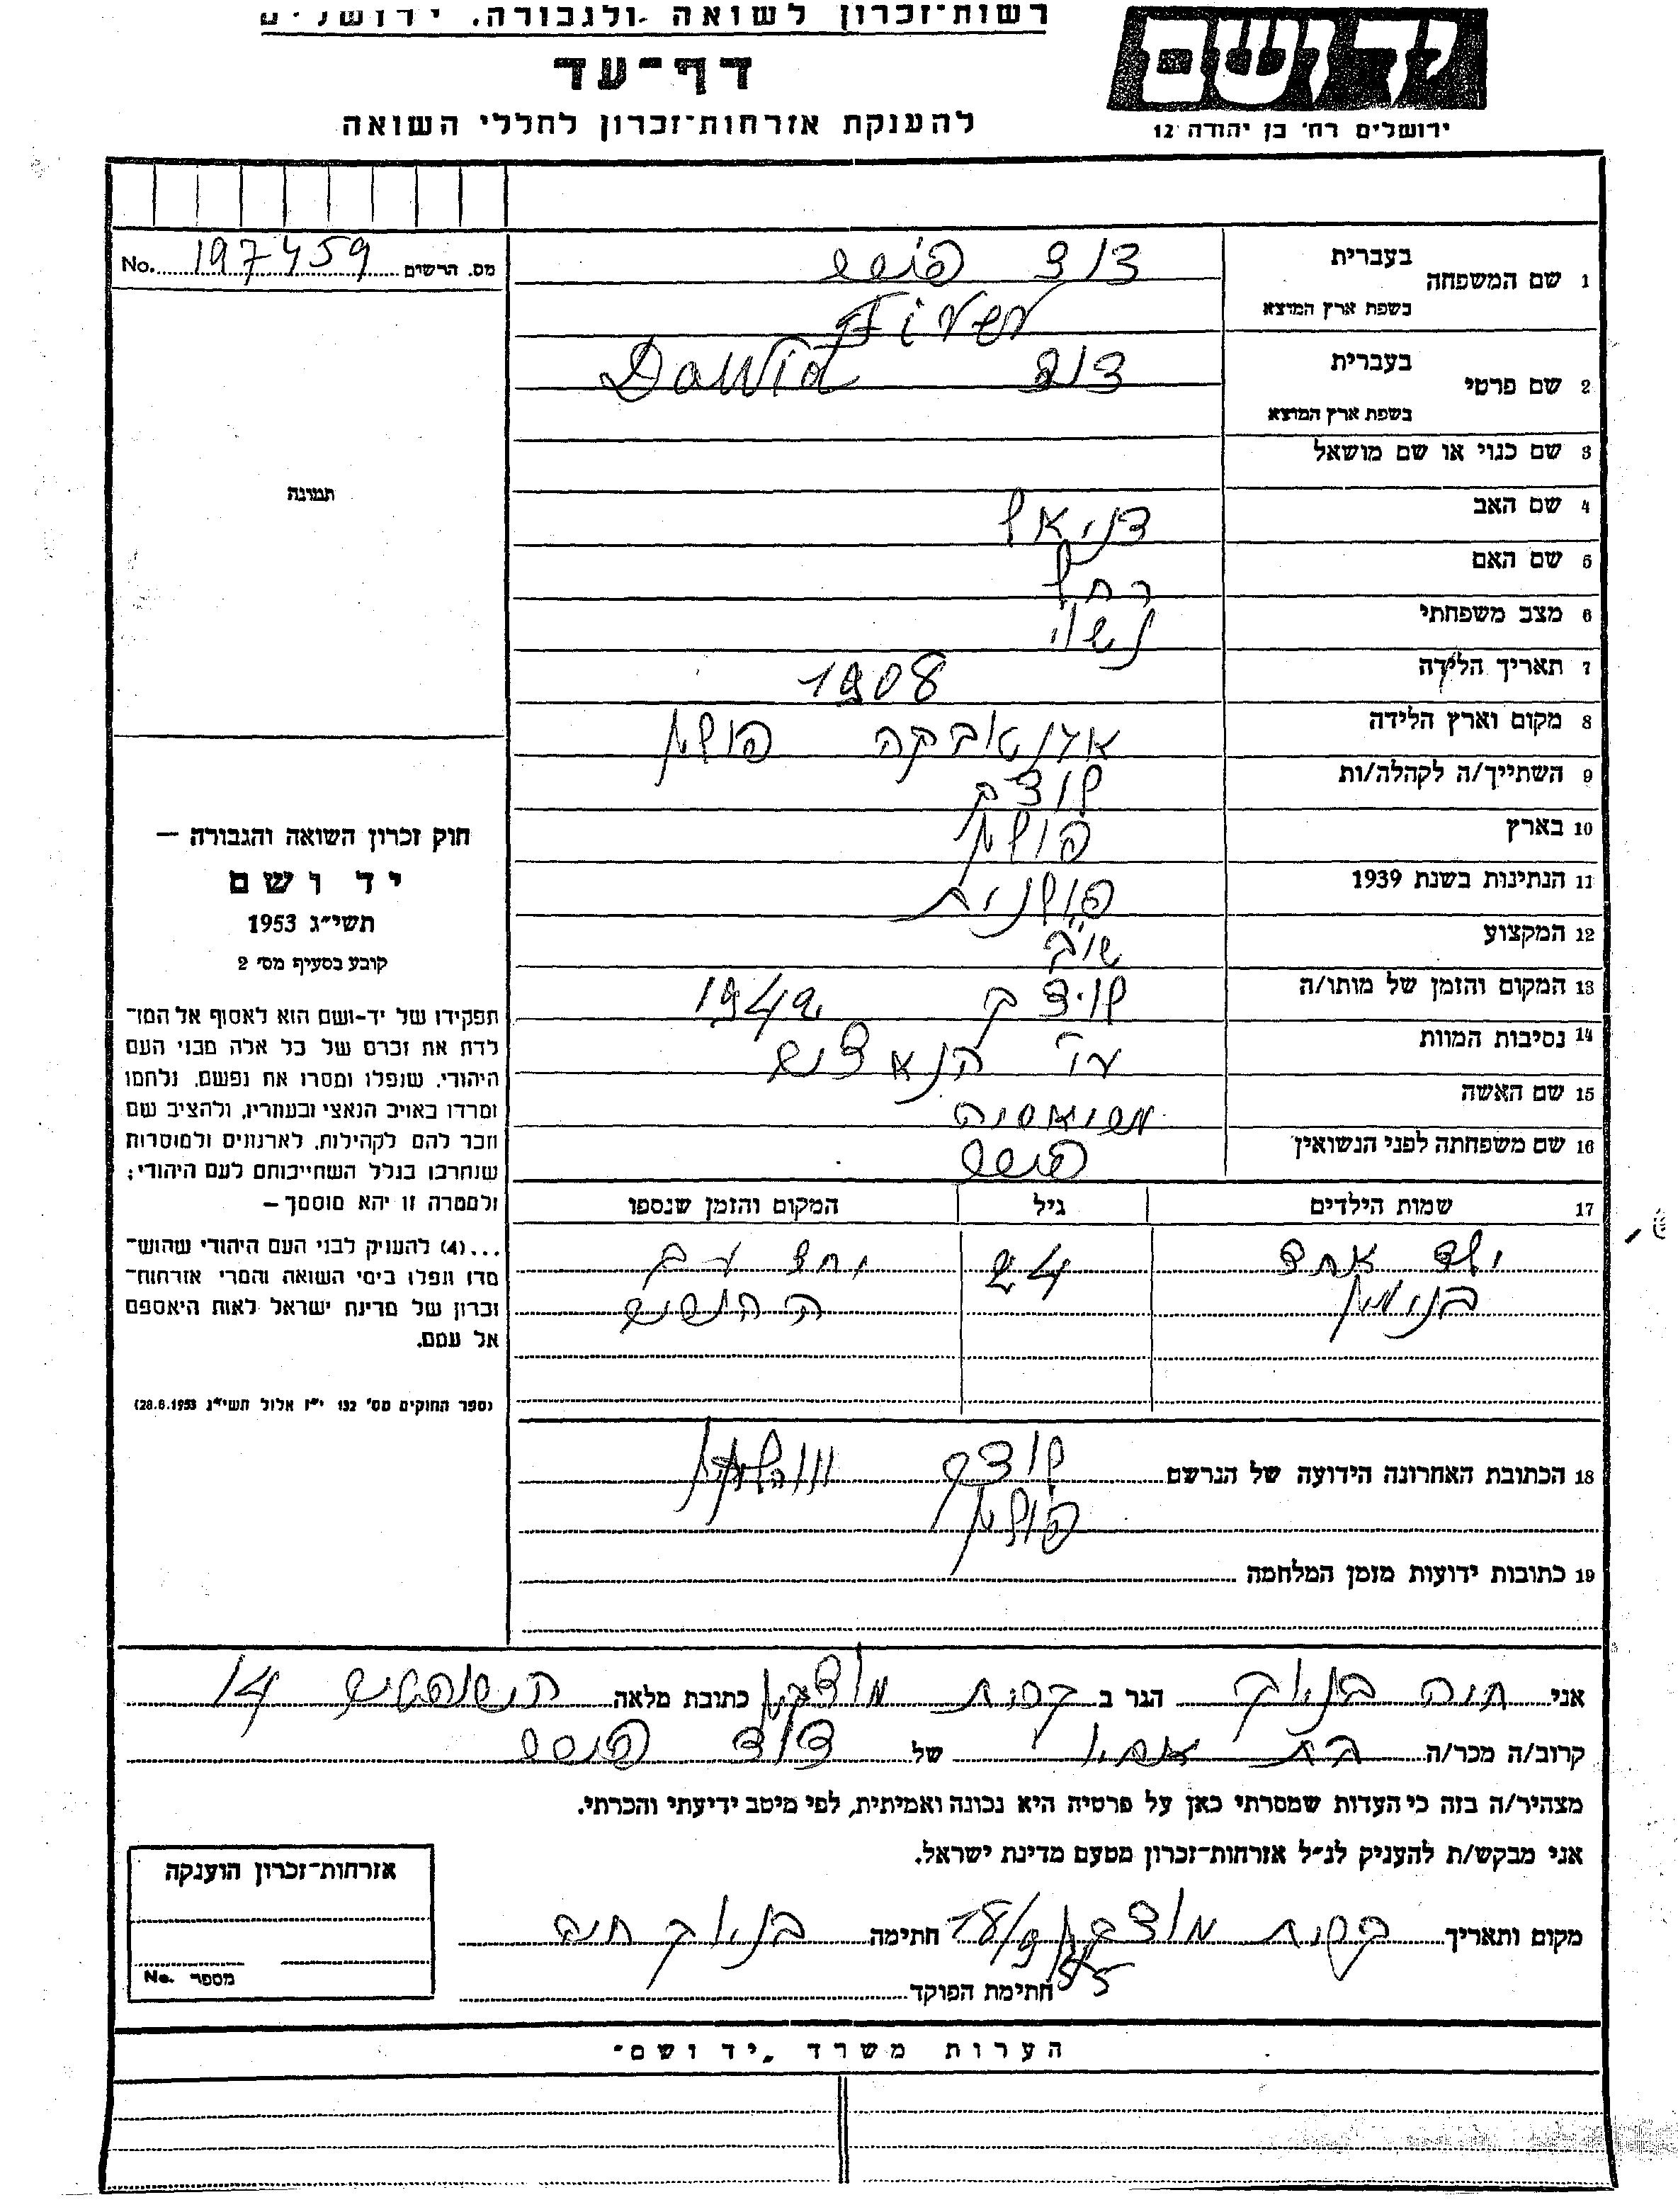 רשות־זכרון לשואה ולגבורה, ירושלים
דף־עד
להענקת אזרחות־זכרון לחללי השואה
יד ושם
ירושלים רח׳ בן יהודה 12
מס. הרשים No. 197459
1 שם המשפחה בעברית דוד
בשפת ארץ המוצא
2 שם פרטי בעברית דוד Dawid
בשפת ארץ המוצא
3 שם כנוי או שם מושאל
4 שם האב דניאל
5 שם האם רחל
6 מצב משפחתי נשוי
7 תאריך הלידה 1908
8 מקום וארץ הלידה פולין
9 השתייך/ה לקהלה/ות לוצק
10 בארץ פולין
11 הנתינות בשנת 1939 פולנית
12 המקצוע
13 המקום והזמן של מותו/ה לוצק 1942
14 נסיבות המוות ע״י הנאצים
15 שם האשה
16 שם משפחתה לפני הנשואין
תמונה
חוק זכרון השואה והגבורה —
יד ושם
תשי״ג 1953
קובע בסעיף מס׳ 2
תפקידו של יד-ושם הוא לאסוף אל המו־
לדת את זכרם של כל אלה מבני העם
היהודי, שנפלו ומסרו את נפשם, נלחמו
ומרדו באויב הנאצי ובעוזריו, ולהציב שם
וזכר להם לקהילות, לארגונים ולמוסדות
שנחרבו בגלל השתייכותם לעם היהודי;
ולמטרה זו יהא מוסמך —
...(4) להעניק לבני העם היהודי שהוש־
מדו ונפלו בימי השואה והמרי אזרחות־
זכרון של מדינת ישראל לאות היאספם
אל עמם.
(ספר החוקים מס׳ 132 י״ז אלול תשי״ג 28.8.1953)
17 שמות הילדים גיל המקום והזמן שנספו
ילד אחד יחד עם
בנימין ההורים
18 הכתובת האחרונה הידועה של הנרשם לוצק
פולין
19 כתובות ידועות מזמן המלחמה
אני חיה הגר ב קרית מוצקין כתובת מלאה השופטים 14
קרוב/ה מכר/ה בת של דוד
מצהיר/ה בזה כי העדות שמסרתי כאן על פרטיה היא נכונה ואמיתית, לפי מיטב ידיעתי והכרתי.
אני מבקש/ת להעניק לנ״ל אזרחות־זכרון מטעם מדינת ישראל.
מקום ותאריך קרית מוצקין 18/9 55 חתימה חיה
חתימת הפוקד
אזרחות־זכרון הוענקה
מספר No.
הערות משרד „יד ושם״